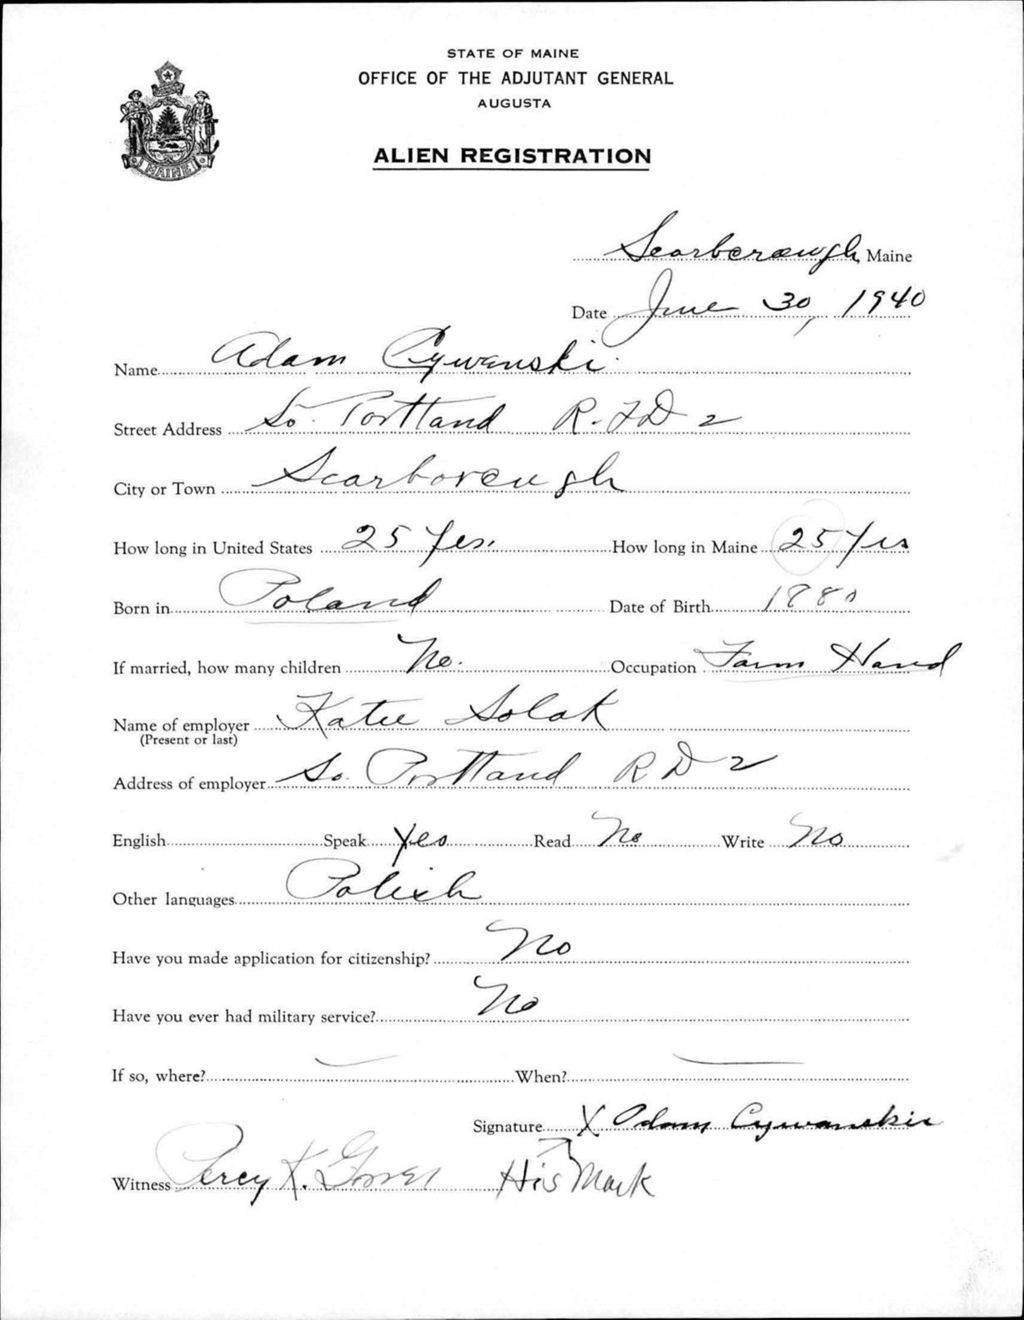 STATE OF MAINE
OFFICE OF THE ADJUTANT GENERAL
AUGUSTA
ALIEN REGISTRATION
MAINE
Scarborough, Maine
Date June 30, 1940
Name Adam Cywanski
Street Address So. Portland R.F.D 2
City or Town Scarborough
How long in United States 25 Yrs. How long in Maine 25 Yrs
Born in Poland Date of Birth 1880
If married, how many children No. Occupation Farm Hand
Name of employer Katie Solak
(Present or last)
Address of employer So. Portland R D 2
English Speak Yes Read No Write No
Other languages Polish
Have you made application for citizenship? No
Have you ever had military service? No
If so, where? — When? —
Signature X Adam Cywanski
Witness Percy K. His Mark